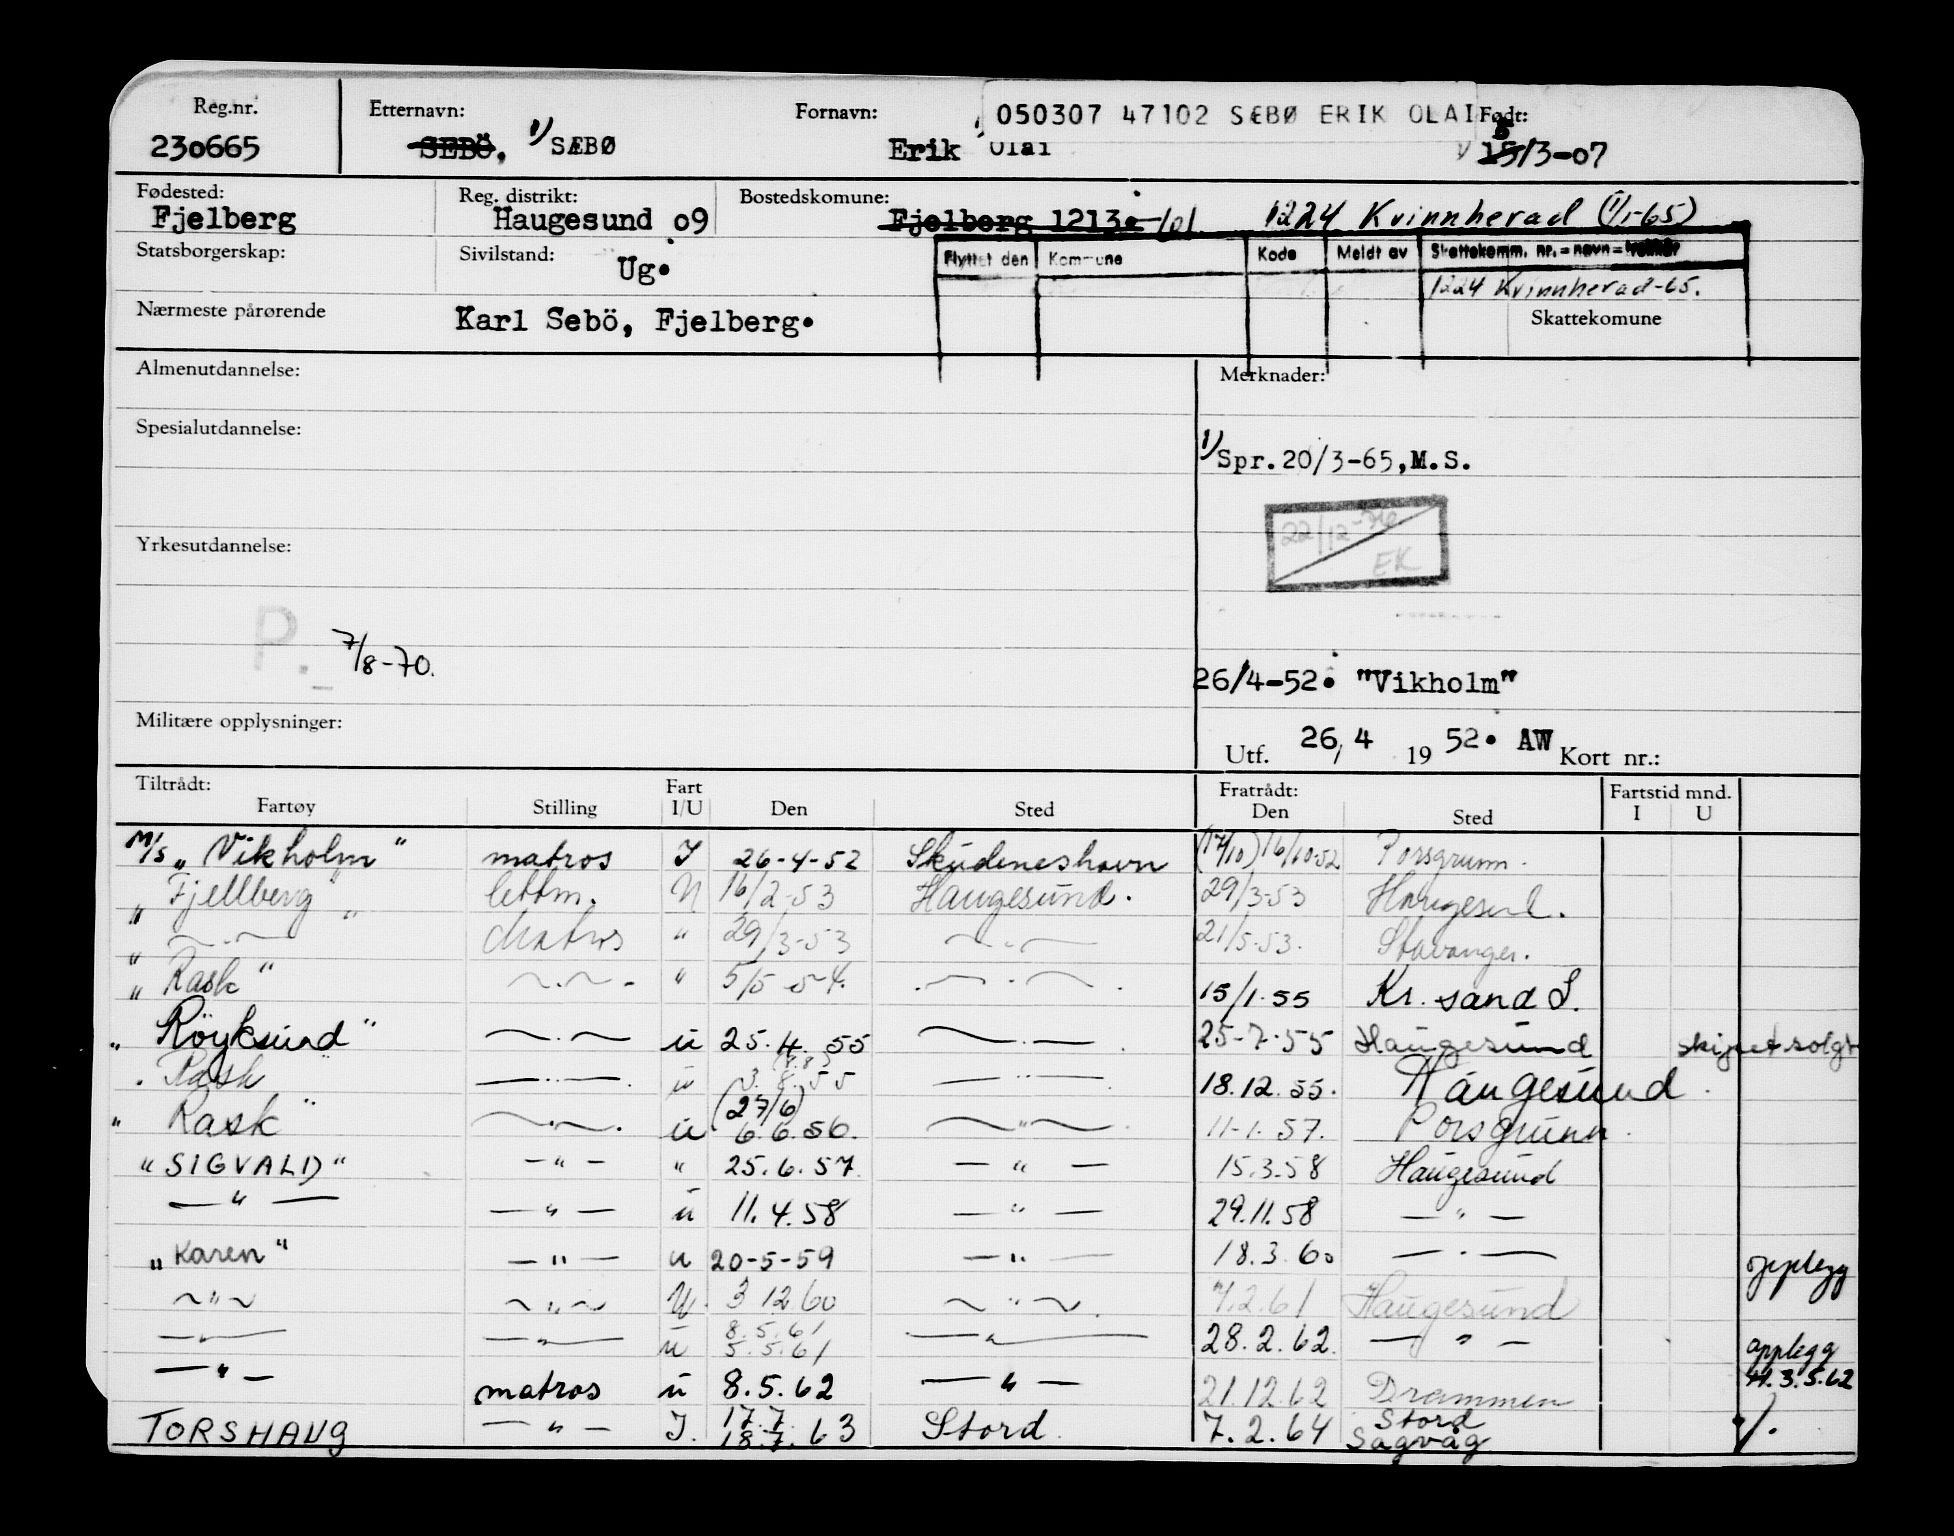 Reg.nr. Etternavn: Fornavn: 050307 47102 SÆBØ ERIK OLAI Født:
230665 SEBÖ, 1/ SÆBØ Erik Olai 5 15/3-07
Fødested: Reg. distrikt: Bostedskomune:
Fjelberg Haugesund o9 Fjelberg 1213. 101 1224 Kvinnherad (1/1-65)
Statsborgerskap: Sivilstand: Ug. Flyttet den Kommune Kode Meldt av Skattekomm. nr. = navn =
1224 Kvinnherad-65.
Nærmeste pårørende Karl Sebö, Fjelberg. Skattekomune
Almenutdannelse: Merknader:
Spesialutdannelse:
1/ Spr.20/3-65,M.S.
22/12-76
EK
Yrkesutdannelse:
P. 7/8-70.
26/4-52. "Vikholm"
Militære opplysninger:
Utf. 26/4 1952. AW Kort nr.:
Tiltrådt: Fart Fratrådt: Fartstid mnd.
Fartøy Stilling I/U Den Sted Den Sted I U
M/S „Vikholm" matros I 26-4-52 Skudeneshavn (17/10) 16/10-52 Porsgrunn.
„Fjellberg" lettm. U 16/2-53 Haugesund. 29/3-53 Haugesund.
„ —„— Matros " 29/3-53 —„— 21/5-53. Stavanger.
„Rask" —„— " 5/5-54. —„— 15/1-55 Kr. sand S.
„Röyksund" —„— u 25.4.55 —„— 25-7-55 Haugesund skipet solgt
„Rask —„— u 3.8.55 —„— 18.12.55. Haugesund.
„Rask" —„— u (27/6) 6.6.56. —„— 11-1.57. Porsgrunn.
"SIGVALD" —"— " 25.6.57 —"— 15.3.58 Haugesund
—"— —"— u 11.4.58 —"— 29.11.58 —"—
„Karen" —"— u 20-5-59 —"— 18.3.60 —"— opplegg
—"— —"— U. 3 12 60 —"— 7.2.61 Haugesund
—"— —"— u 8.5.61 5.5.61 —"— 28.2.62. —"— opplegg
—"— matros u 8.5.62 —"— 21.12.62 Drammen 3.5.62
TORSHAUG —"— I. 17.7. 18.7.63 Stord 7.2.64 Stord Sagvåg ./.